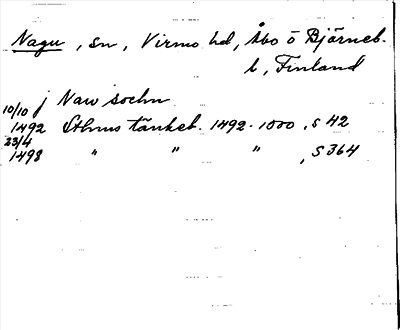 Nagu, sn, Virmo hd, Åbo o Björneb.
l, Finland
j Naw sochn
10/10 1492 Sthms tänkeb. 1492-1500, s 42
23/4 1498 " " " , s 364